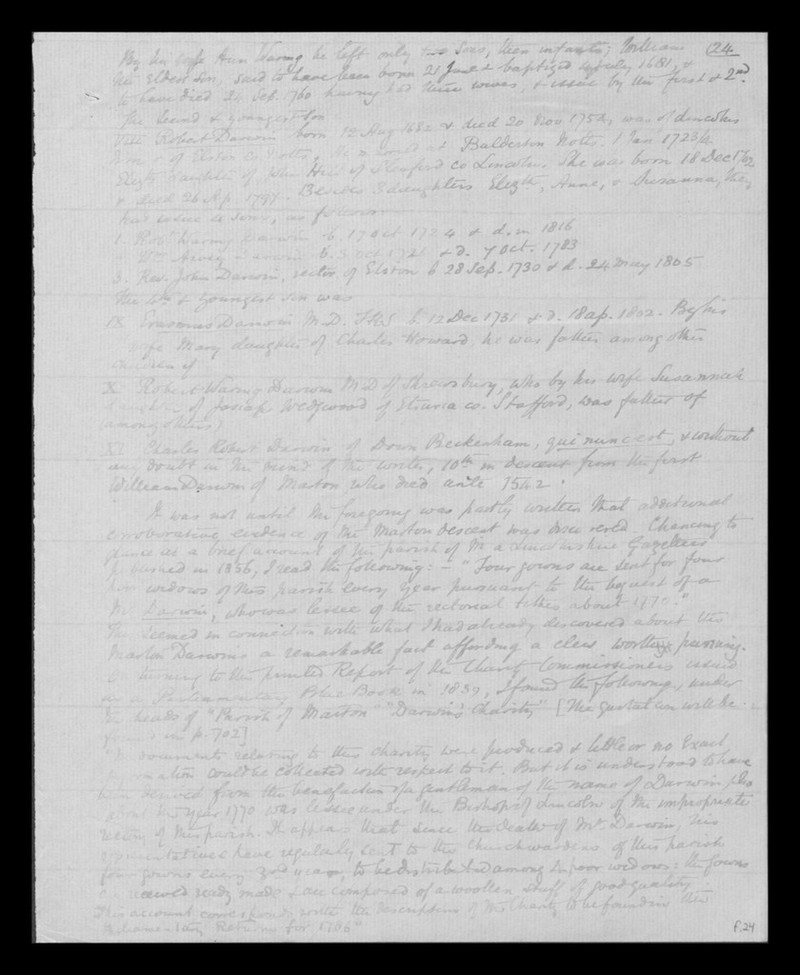 By his wife Ann Waring he left only two sons, then infants; William (24
the Eldest son, said to have been born 21 June & baptized 4 July, 1681, &
to have died 24 Sep. 1760 having had three wives, & issue by the first & 2nd.
The second & youngest son
VIII Robert Darwin born 12 Aug 1682 & died 20 Nov 1754, was of Lincolns
Inn & of Elston Co. Notts. He married at Balderton Notts. 1 Jan 1723/4
Elizth daughter of John Hill of Sleaford co Lincoln. She was born 18 Dec 1702
& died 26 Ap. 1797. Besides 3 daughters Elizth, Anne, & Susanna, they
had issue 4 sons, as follows
1. Robt Waring Darwin b. 17 Oct 1724 & d. in 1816
2. Wm Alvey Darwin b. 3 Oct 1726 & d. 7 Oct. 1783
3. Rev. John Darwin, rector of Elston b 28 Sep. 1730 & d. 24 May 1805
The 4th & youngest son was
IX Erasmus Darwin M.D. FRS b. 12 Dec 1731 & d. 18 ap. 1802. By his
wife Mary daughter of Charles Howard, he was father among other
children of
X Robert Waring Darwin MD of Shrewsbury, who by his wife Susannah
daughter of Josiah Wedgwood of Etruria co. Stafford, was father of
(among others)
XI Charles Robert Darwin of Down Beckenham, qui nunc est, & without
any doubt in the mind of the writer, 10th in descent from the first
William Darwin of Marton who died ante 1542.
It was not until the foregoing was partly written that additional
corroborative evidence of the Marton descent was discovered. Chancing to
glance at a brief account of the parish of M in a Lincolnshire Gazetteer
published in 1856, I read the following: - "Four gowns are sent for four
poor widows of this parish every year pursuant to the bequest of a
Mr Darwin, who was lessee of the rectorial tithes about 1770."
This seemed in connection with what I had already discovered about the
Marton Darwins a remarkable fact affording a clew worthy pursuing.
On turning to the printed Report of the Charity Commissioners issued
as a Parliamentary Blue Book in 1839, I found the following, under
the heads of "Parish of Marton" "Darwin's Charity" [The quotation will be
found in p. 702]
"No documents relating to this charity were produced & little or no exact
information could be collected with respect to it. But it is understood to have
been derived from the benefaction of a gentleman of the name of Darwin who
about the year 1770 was lessee under the Bishop of Lincoln of the impropriate
rectory of this parish. It appears that since the death of Mr. Darwin, his
representatives have regularly sent to the churchwardens of this parish
four gowns every 3rd year, to be distributed among 4 poor widows: the gowns
are received ready made & are composed of a woollen stuff of good quality.
This account corresponds with the description of the Charity to be found in the
Parliamentary Returns for 1786"
f.24